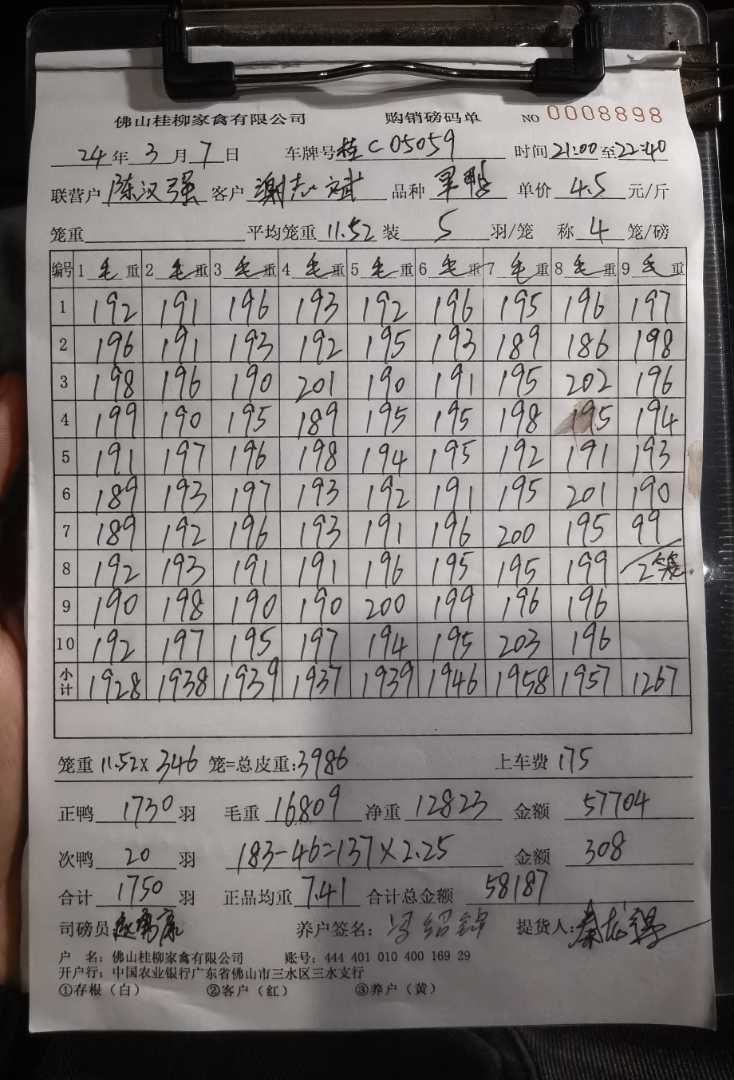 佛山桂柳家禽有限公司 购销磅码单 NO 0008898
24年3月7日 车牌号桂C05059 时间21:00至22:40
联营户 陈汉强 客户 谢志斌 品种 单价 4.5 元/斤
笼重 平均笼重 11.52 装 5 羽/笼 称 4 笼/磅
编号 1毛重 2毛重 3毛重 4毛重 5毛重 6毛重 7毛重 8毛重 9毛重
1 192 191 196 193 192 196 195 196 197
2 196 191 193 192 195 193 189 186 198
3 198 196 190 201 190 191 195 202 196
4 199 190 195 189 195 195 198 195 194
5 191 197 196 198 194 195 192 191 193
6 189 193 197 193 192 191 195 201 190
7 189 192 196 193 191 196 200 195 99
8 192 193 191 191 196 195 195 199 2笼
9 190 198 190 190 200 199 196 196
10 192 197 195 197 194 195 203 196
小计 1928 1938 1939 1937 1939 1946 1958 1957 1267
笼重 11.52× 346 笼=总皮重:3986 上车费 175
正鸭 1730 羽 毛重 16809 净重 12823 金额 57704
次鸭 20 羽 183-46=137×2.25 金额 308
合计 1750 羽 正品均重 7.41 合计总金额 58187
司磅员 养户签名: 冯绍锦 提货人:
户 名: 佛山桂柳家禽有限公司 账号: 444 401 010 400 169 29
开户行: 中国农业银行广东省佛山市三水区三水支行
①存根(白) ②客户(红) ③养户(黄)